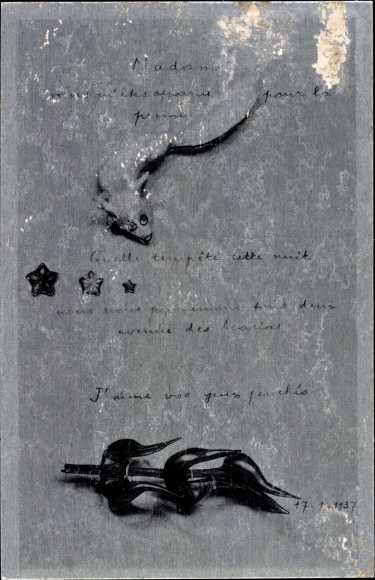 Madame
vous m'êtes apparue pour la
Quelle tempête cette nuit
nous nous promenions tous deux
avenue des Acacias
J'aime vos yeux penchés
17. 1. 1937